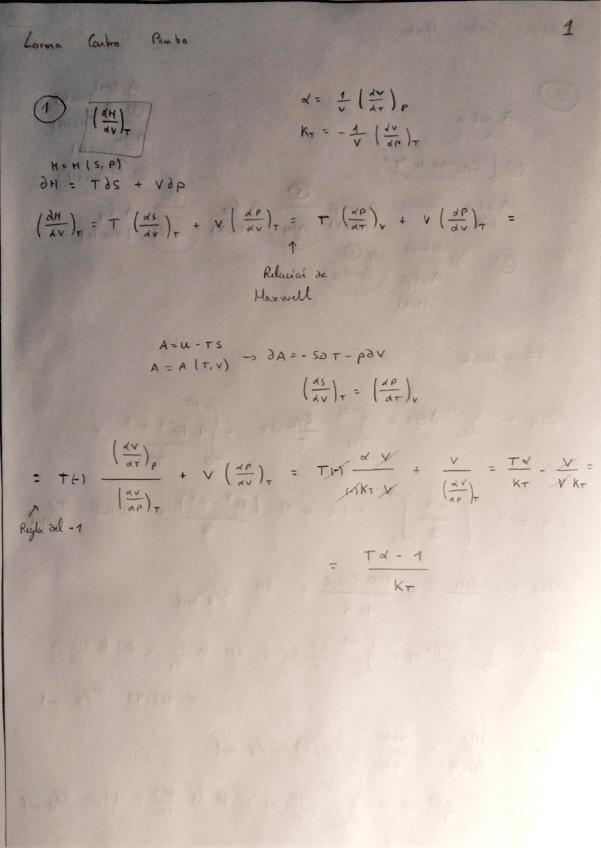 1
Lorena Castro Pombo
① (∂H/∂V)_T
α = 1/V (∂V/∂T)_P
K_T = - 1/V (∂V/∂P)_T
H = H (S, P)
∂H = T∂S + V∂p
(∂H/∂V)_T = T (∂S/∂V)_T + V (∂P/∂V)_T = T (∂P/∂T)_V + V (∂P/∂V)_T =
↑
Relación de
Maxwell
A = u - TS
A = A (T, V) → ∂A = - S∂T - p∂V
(∂S/∂V)_T = (∂P/∂T)_V
= T(-) (∂V/∂T)_P / (∂V/∂P)_T + V (∂P/∂V)_T = T(-) α · V / (-)K_T · V + V / (∂V/∂P)_T = Tα / K_T - V / V K_T =
↗
Regla del -1
= Tα - 1 / K_T